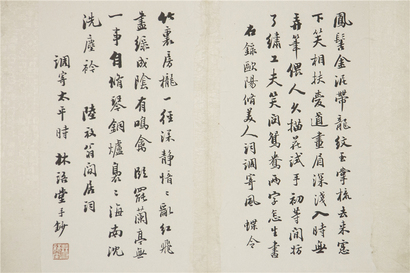 鳳髻金泥帶龍紋玉掌梳去來窓
下笑相扶愛道畫眉深淺入時無
弄筆偎人久描花試手初等閒妨
了繡工夫笑問鴛鴦兩字怎生書
右錄歐陽脩美人詞調寄風蝶令
竹裏房櫳一徑深靜愔〻亂紅飛
盡綠成陰有鳴禽 臨罷蘭亭無
一事自脩琴銅爐裊〻海南沈
洗塵衿 陸放翁閒居詞
調寄太平時 林語堂手抄